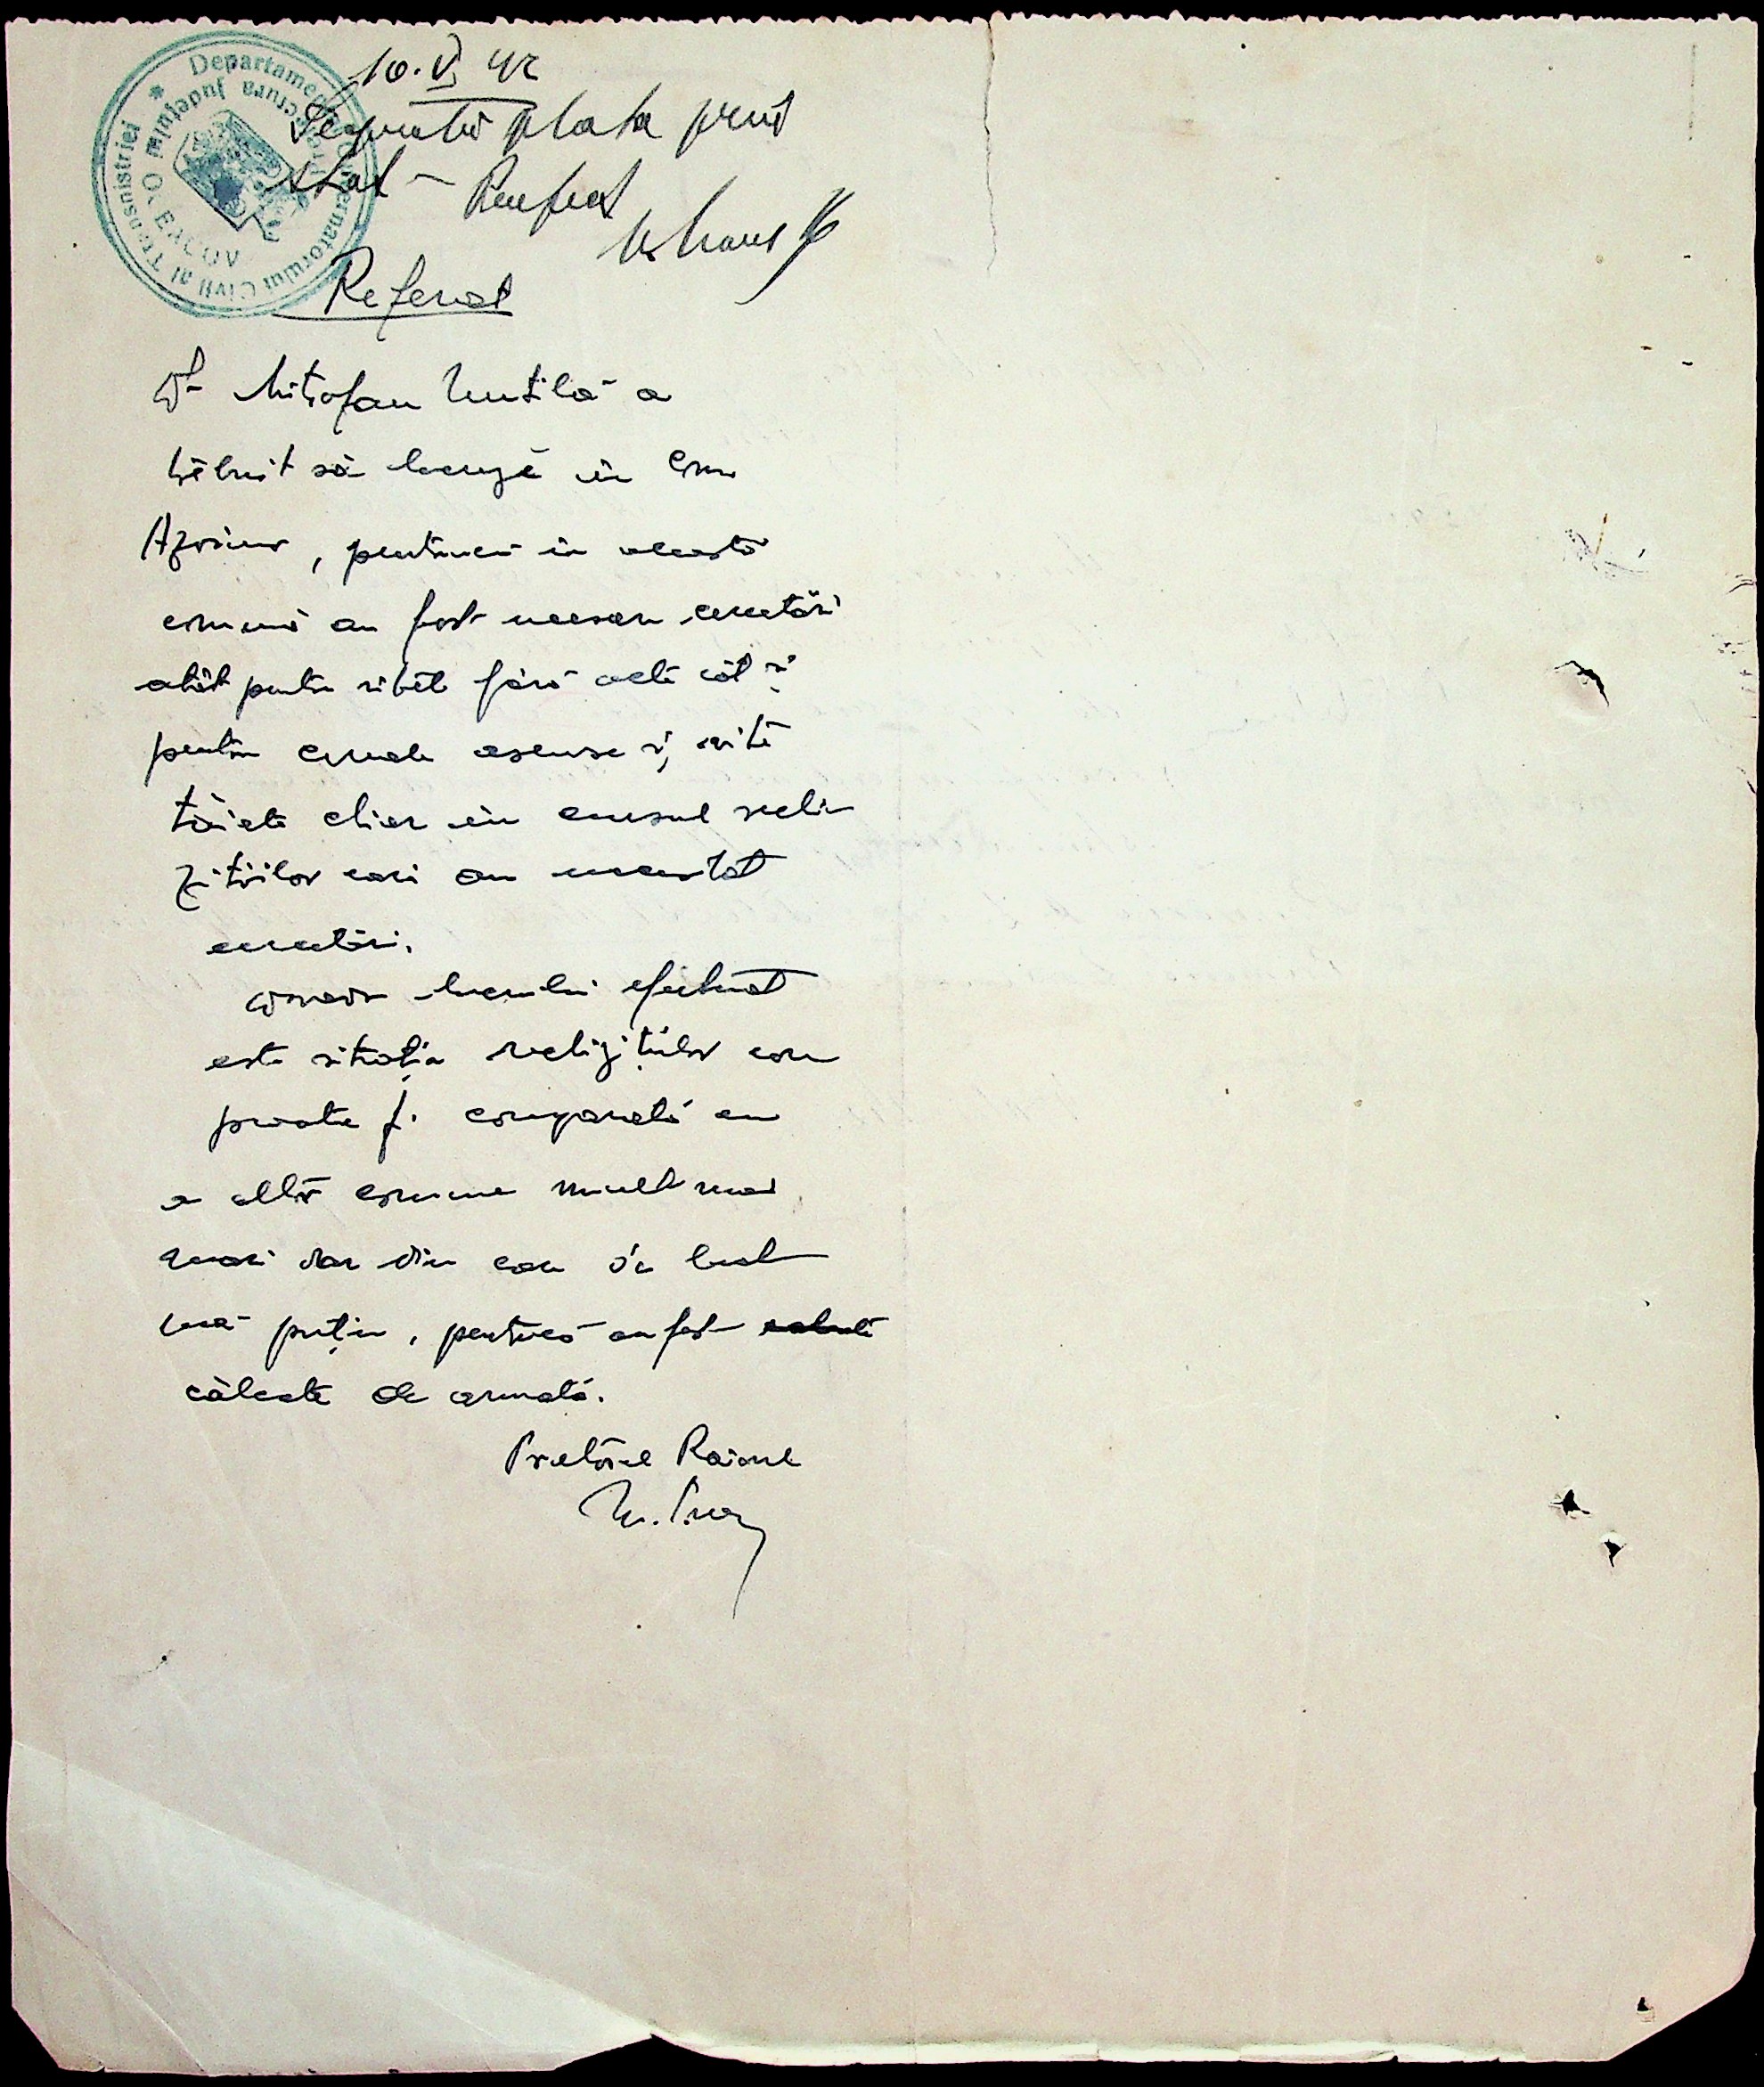 Departamentul Guvernatorului Civil al Transnistriei
Prefectura județului
10.VI 42
Se aprobă plata prin
stat – Prefect
Referat
Dl Mitrofan a
trebuit să lucreze în Com
, pentrucă în această
comună au fost necesare cercetări
atât pentru vitele fără acte cât și
pentru cereale ascunse și vite
tăiate chiar în cursul rechi-
zițiilor cari au necesitat
cercetări.
Dovada lucrului efectuat
este situația rechizițiilor care
poate fi comparată cu
a altor comune mult mai
mari dar din care s'a luat
mai puțin, pentrucă au fost
călcate de armată.
Pretorul Raionului